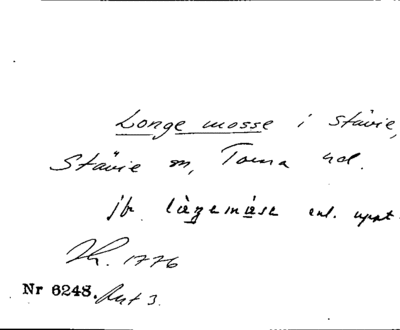 Longe mosse i Stävie,
Stävie sn, Torna hd.
jfr làngemåse enl. uppt.
Lh. 1776
Nr 6248. Avt 3.